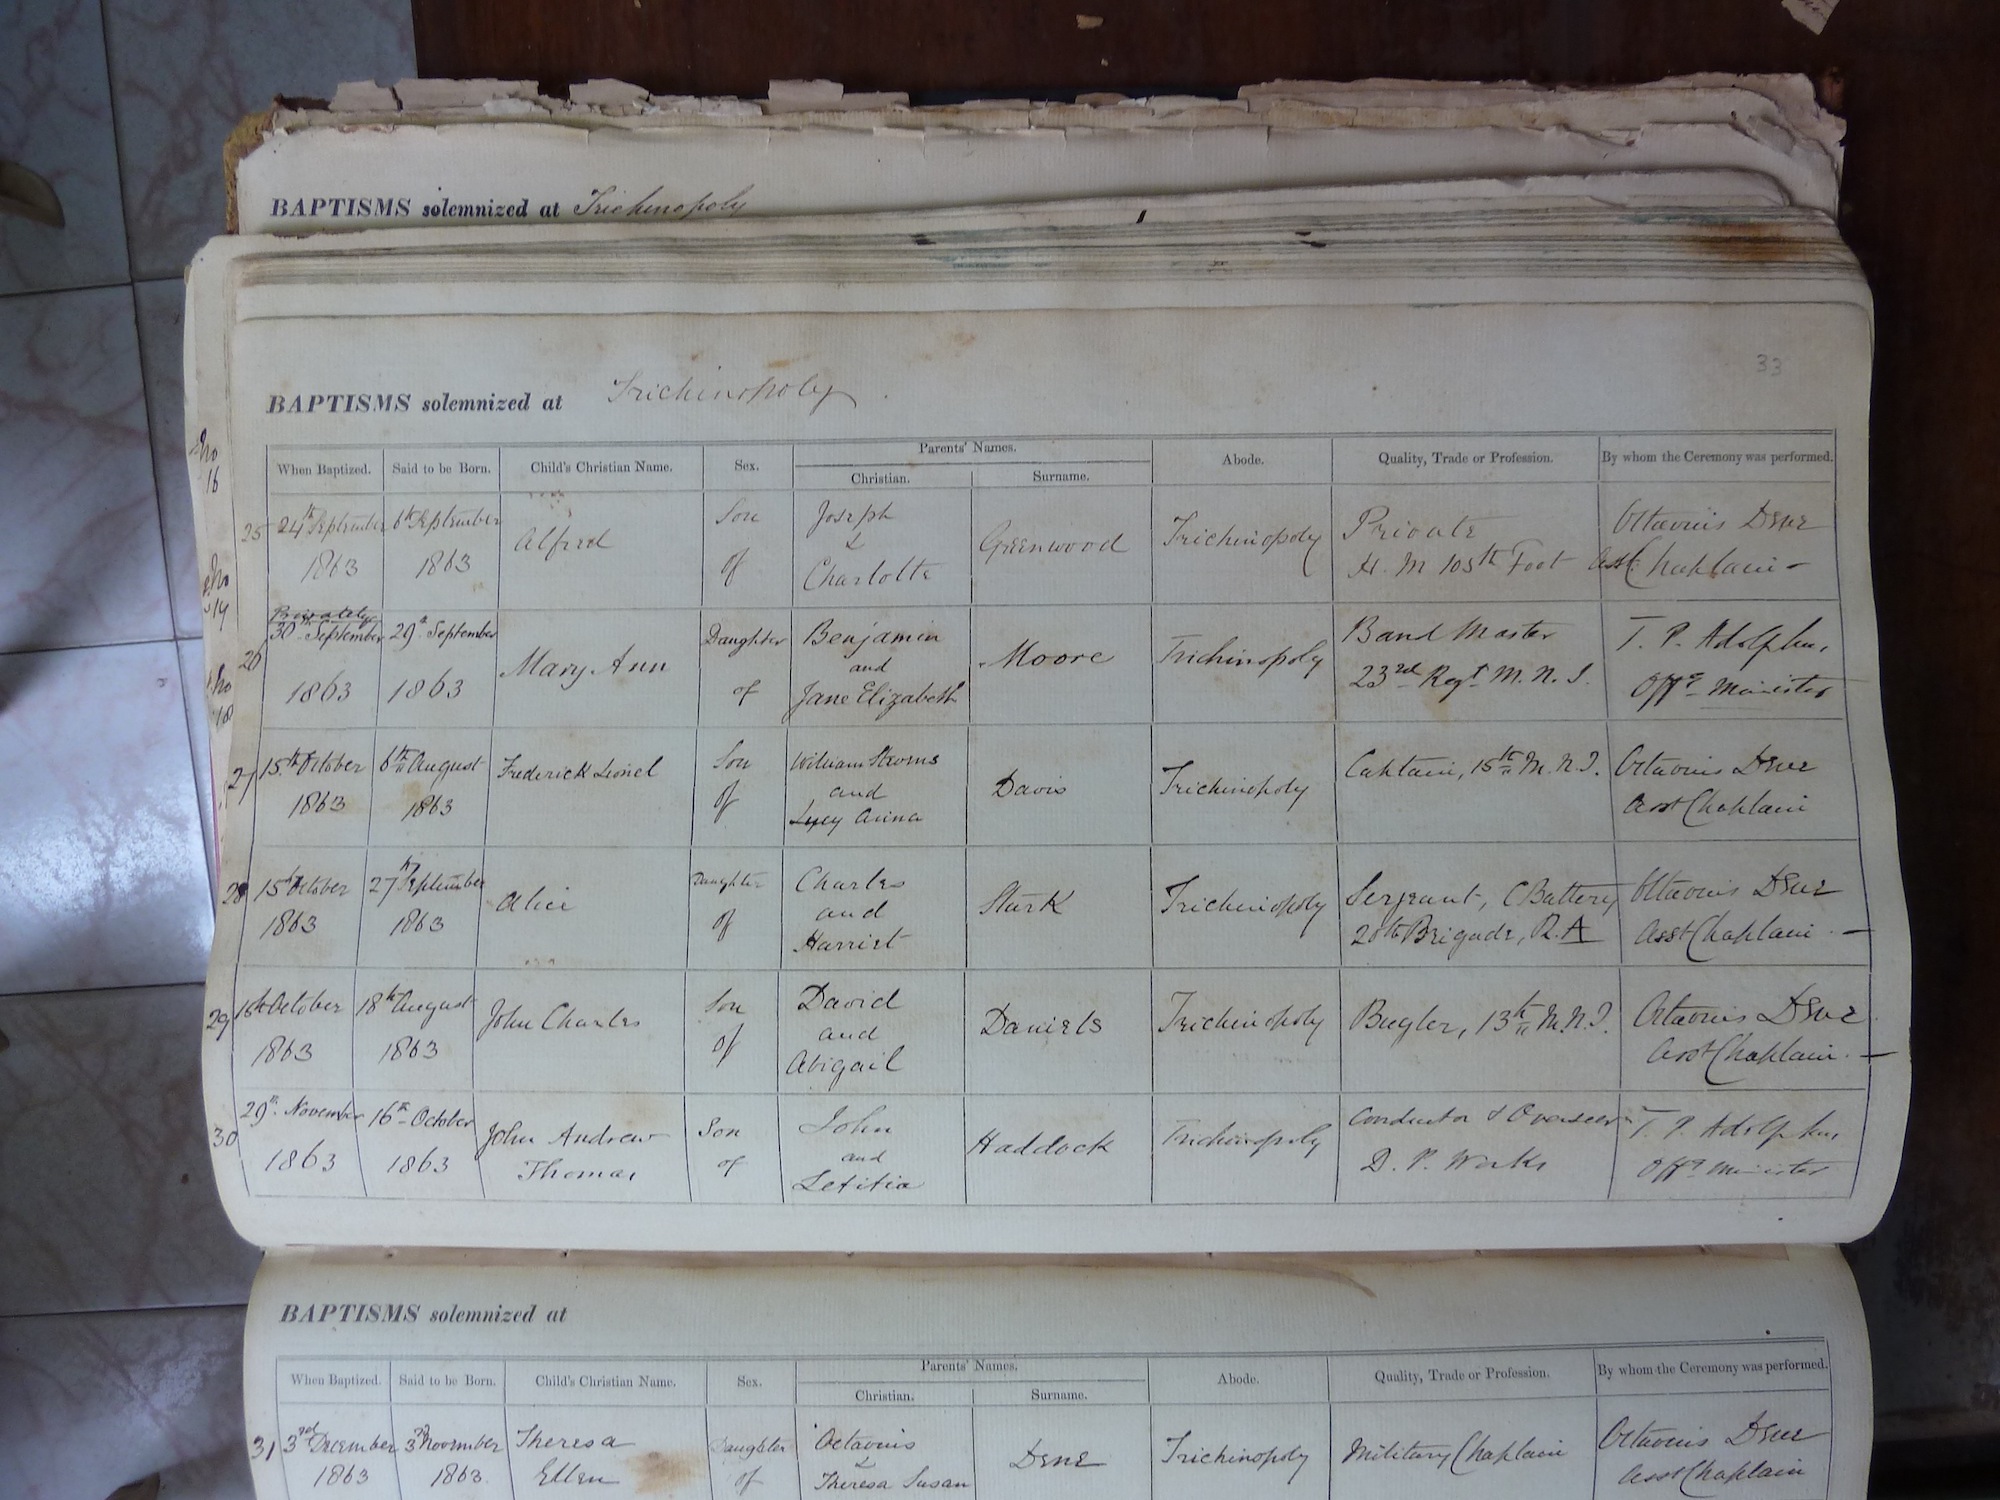 BAPTISMS solemnized at Trichinopoly
33
BAPTISMS solemnized at Trichinopoly
When Baptized. Said to be Born. Child's Christian Name. Sex. Parents' Names. Christian. Surname. Abode. Quality, Trade or Profession. By whom the Ceremony was performed.
25 24th September 6th September Alfred Son Joseph Greenwood Trichinopoly Private Octavius Dene
1863 1863 of & Charlotte H. M 105th Foot Asst Chaplain
Privately
26 30th September 29th September Mary Ann Daughter Benjamin Moore Trichinopoly Band Master T. P. Adolphus
1863 1863 of and Jane Elizabeth 23rd Regt M. N. I. Offg Minister
27 15th October 6th August Frederick Lionel Son William Davis Trichinopoly Captain, 15th M. N. I. Octavius Dene
1863 1863 of and Lucy Anna Asst Chaplain
28 15th October 27th September Alice Daughter Charles Stark Trichinopoly Serjeant, C Battery Octavius Dene
1863 1863 of and Harriet 20th Brigade, R. A Asst Chaplain
29 October 18th August John Charles Son David Daniels Trichinopoly Bugler, 13th M. N. I. Octavius Dene
1863 1863 of and Abigail Asst Chaplain
30 29th November 16th October John Andrew Son John Haddock Trichinopoly Conductor & Overseer T. P. Adolphus
1863 1863 Thomas of and Letitia D. P. Works Offg Minister
BAPTISMS solemnized at
When Baptized. Said to be Born. Child's Christian Name. Sex. Parents' Names. Christian. Surname. Abode. Quality, Trade or Profession. By whom the Ceremony was performed.
31 3rd December 3rd November Theresa Daughter Octavius Dene Trichinopoly Military Chaplain Octavius Dene
1863 1863. Ellen of & Theresa Susan Asst Chaplain